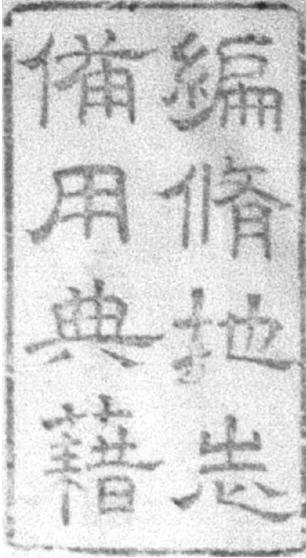 編脩地志
備用典藉